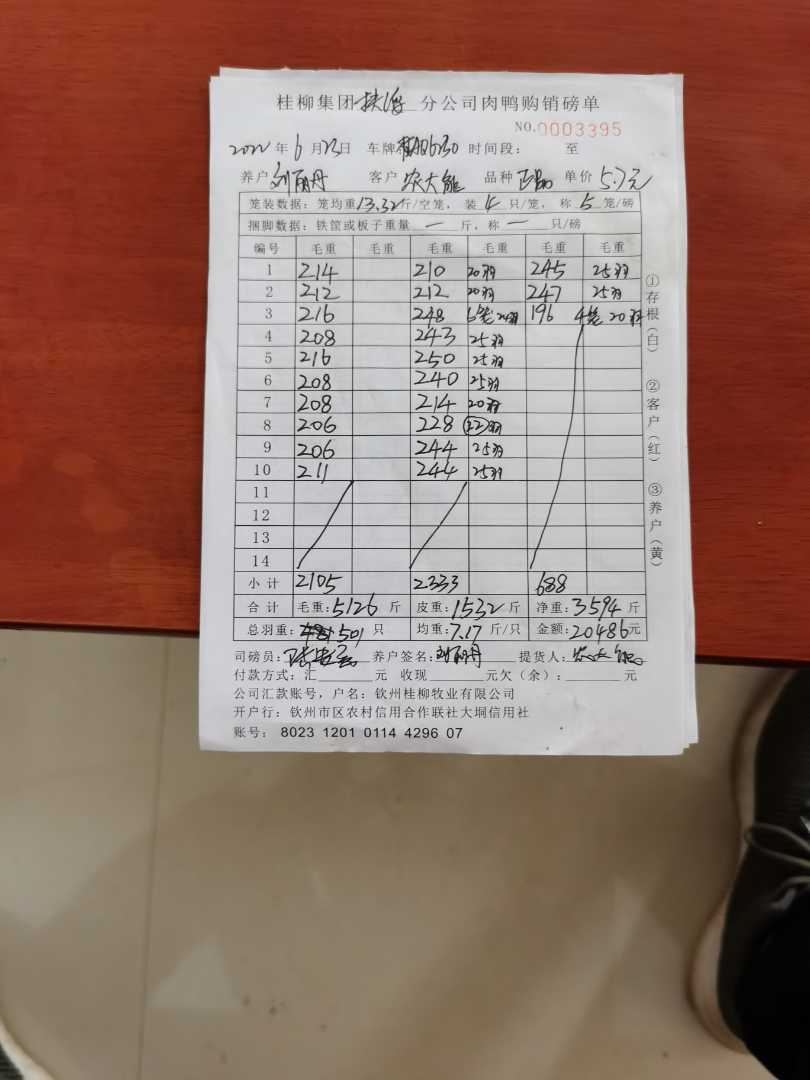 桂柳集团扶绥分公司肉鸭购销磅单
NO.0003395
2022年6月23日 车牌 时间段: 至
养户刘丽丹 客户农大能 品种正品 单价5.7元
笼装数据: 笼均重13.32斤/空笼, 装4只/笼, 称5笼/磅
捆脚数据: 铁筐或板子重量一斤, 称一只/磅
编号 毛重 毛重 毛重 毛重 毛重 毛重
1 214 210 20羽 245 25羽
2 212 212 20羽 247 25羽
3 216 248 6笼24羽 196 4笼20羽
4 208 243 25羽
5 216 250 25羽
6 208 240 25羽
7 208 214 20羽
8 206 228 22羽
9 206 244 25羽
10 211 244 25羽
11
12
13
14
小计 2105 2333 688
合计 毛重:5126斤 皮重:1532斤 净重:3594斤
总羽重:501只 均重:7.17斤/只 金额:20486元
司磅员: 养户签名:刘丽丹 提货人:农大能
付款方式: 汇元 收现元欠(余):元
公司汇款账号, 户名: 钦州桂柳牧业有限公司
开户行: 钦州市区农村信用合作联社大垌信用社
账号: 8023 1201 0114 4296 07
①存根(白) ②客户(红) ③养户(黄)